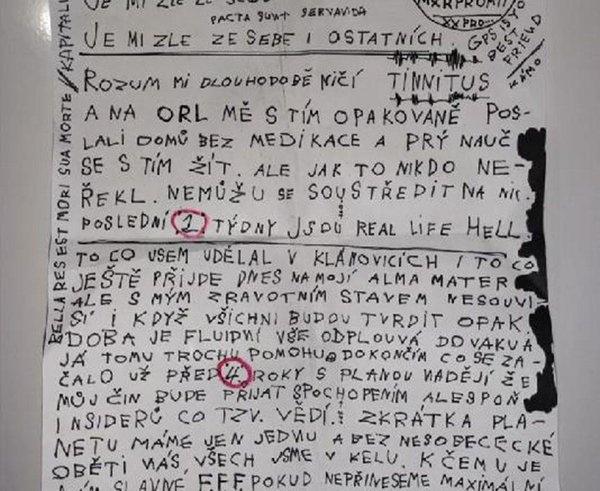 JE MI ZLE ZE SEBE
PACTA SUNT SERVANDA
JE MI ZLE ZE SEBE I OSTATNÍCH.
XX PRO
GPS IST
BEST
FRIEND
KÁMO
BELLA RES EST MORI SUA MORTE // KAPITALI
ROZUM MI DLOUHODOBĚ NIČÍ TINNITUS
A NA ORL MĚ S TÍM OPAKOVANĚ POS-
LALI DOMŮ BEZ MEDIKACE A PRÝ NAUČ
SE S TÍM ŽÍT. ALE JAK TO NIKDO NE-
ŘEKL. NEMŮŽU SE SOUSTŘEDIT NA NIC.
POSLEDNÍ 2 TÝDNY JSOU REAL LIFE HELL.
TO CO JSEM UDĚLAL V KLÁNOVICÍCH I TO CO
JEŠTĚ PŘIJDE DNES NA MOJÍ ALMA MATER
ALE S MÝM ZRAVOTNÍM STAVEM NESOUVI-
SÍ I KDYŽ VŠICHNI BUDOU TVRDIT OPAK
DOBA JE FLUIDNÍ VŠE ODPLOUVÁ DO VAKUA
JÁ TOMU TROCHU POMOHU A DOKONČÍM CO SE ZA-
ČALO UŽ PŘED 4 ROKY S PLANOU NADĚJÍ ŽE
MŮJ ČIN BUDE PŘIJAT S POCHOPENÍM ALESPOŇ
INSIDERŮ CO TZV. VĚDÍ. ZKRÁTKA PLA-
NETU MÁME JEN JEDNU A BEZ NESOBECECKÉ
OBĚTI NÁS, VŠECH JSME V KELU. K ČEMU JE
SLAVNE F.F.F. POKUD NEPŘINESEME MAXIMÁLNÍ